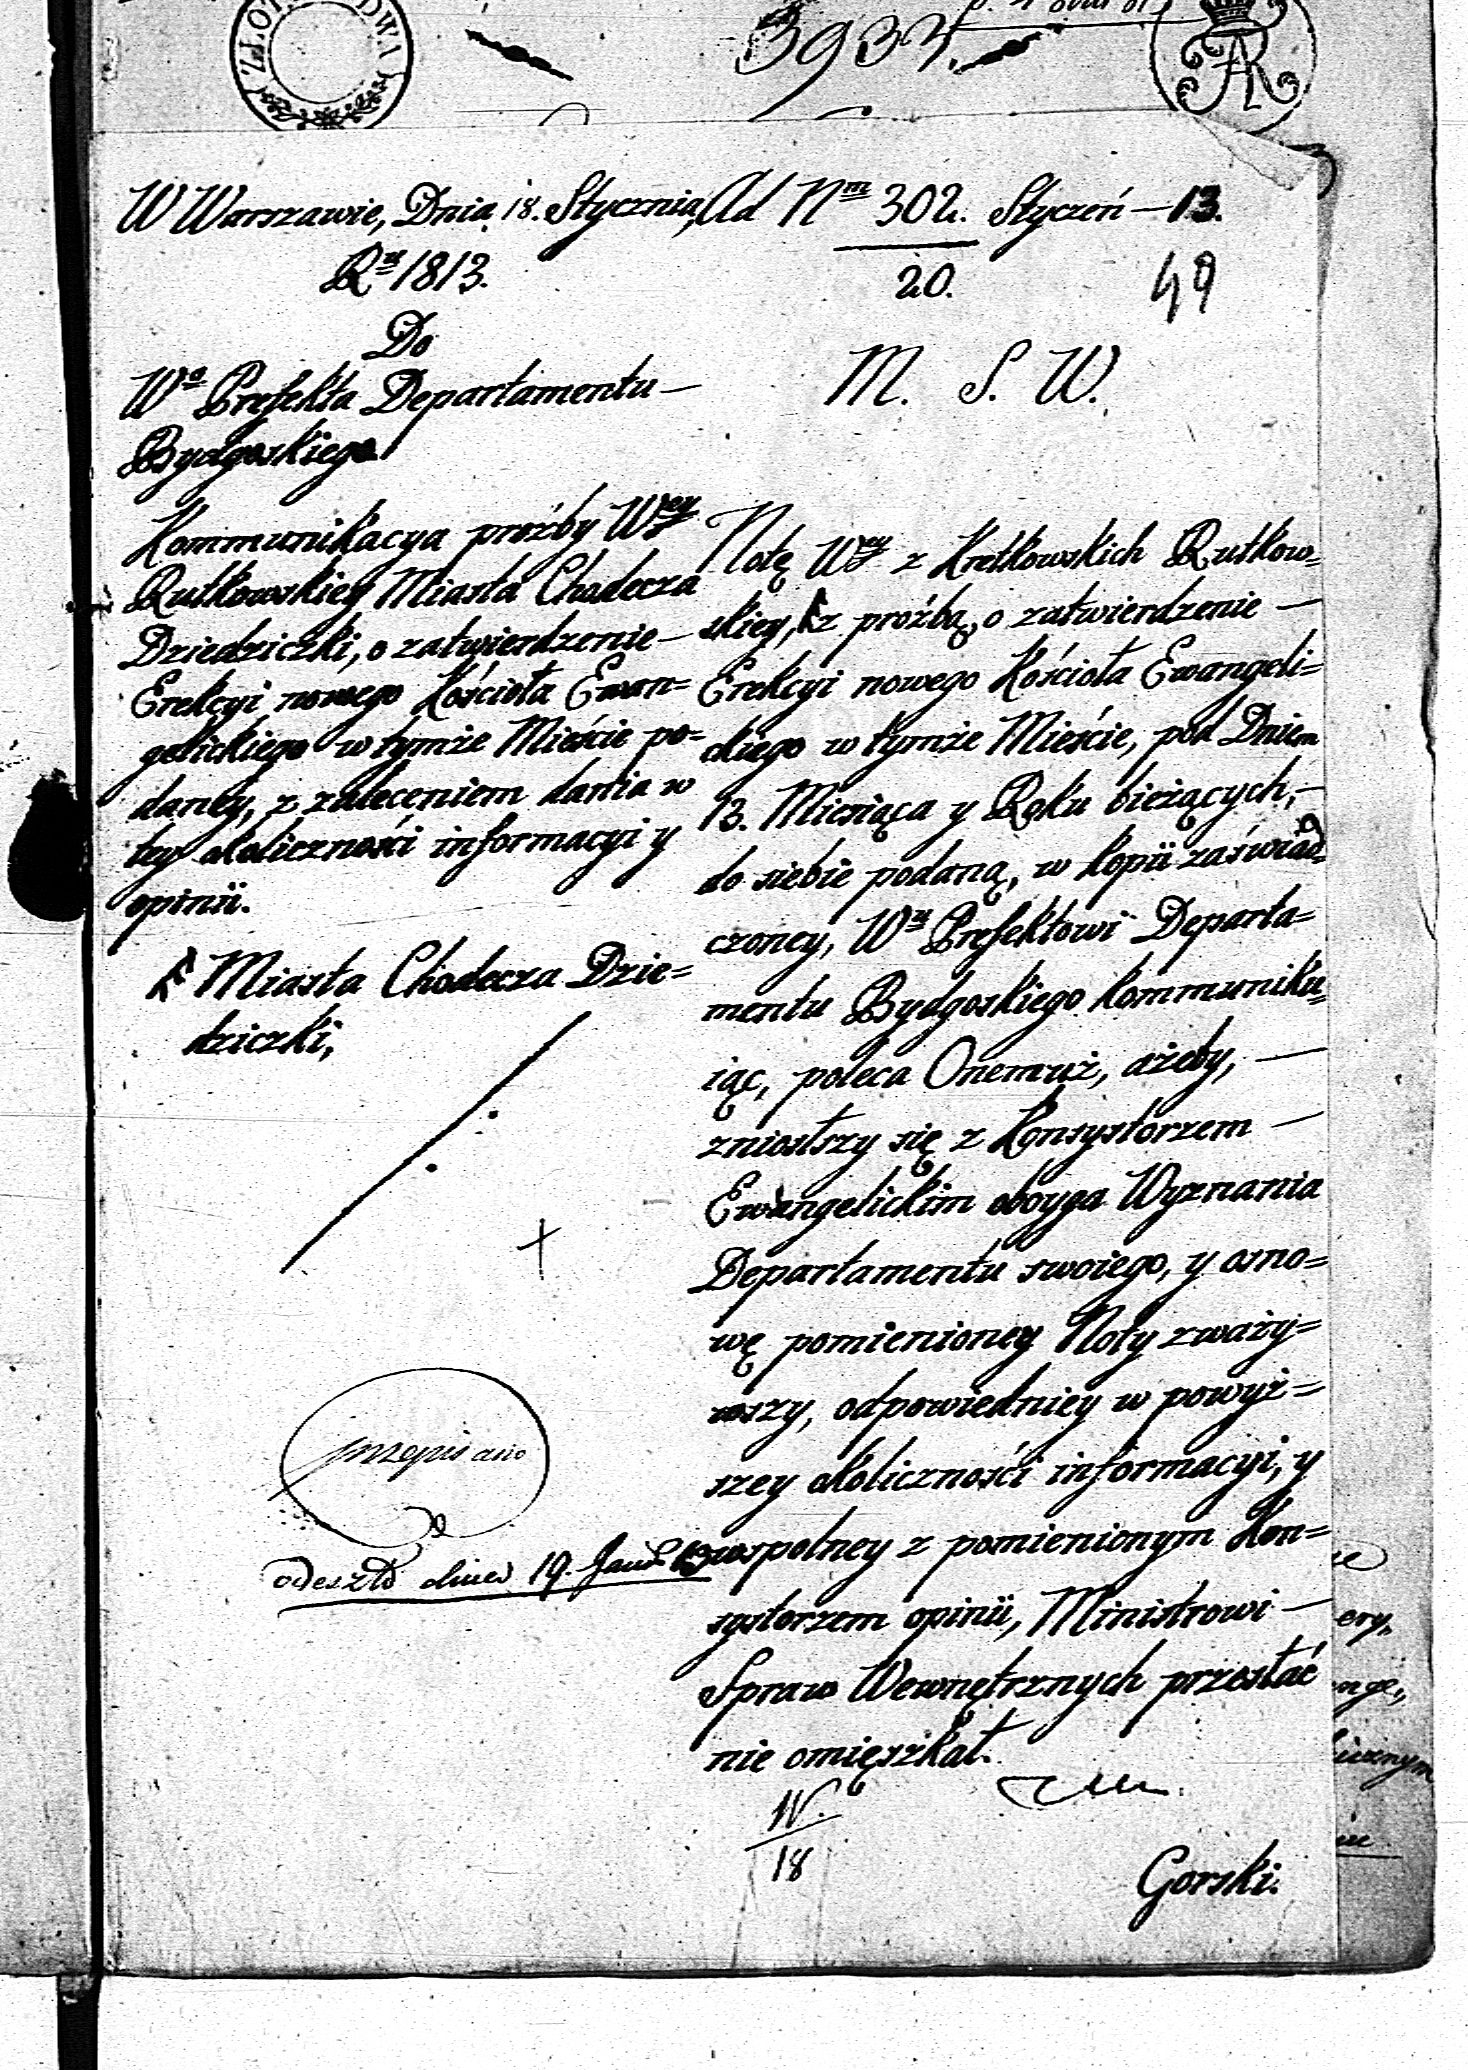 ZŁOT DWA
3934.
W Warszawie, Dnia 18. Stycznia,
Rᵘ 1813.
Ad Nᵐ 302. Styczeń — 13.
20.
49
Do
Wᵒ Prefekta Departamentu —
Bydgoskiego
M. S. W.
Kommunikacya proźby Wᵉʸ
Rutkowskiey Miasta Chodecza
Dziedziczki, o zatwierdzenie —
Erekcyi nowego Kościoła Ewan=
gelickiego w tymże Mieście po=
daney, z zaleceniem dania w
tey okoliczności informacyi y
opinii.
Miasta Chodecza Dzie=
dziczki,
przepisano
odeszło dnia 19. Janˡ 13
Notę Wᵉʸ z Kretkowskich Rutkow=
skiey, z proźbą, o zatwierdzenie —
Erekcyi nowego Kościoła Ewangeli=
ckiego w tymże Mieście, pod Dniem
13. Miesiąca y Roku bieżących, —
do siebie podaną, w kopii zaświad=
czoney, Wᵘ Prefektowi Departa=
mentu Bydgoskiego kommuniku=
iąc, poleca Onemuż, ażeby, —
zniosłszy się z Konsystorzem —
Ewangelickim oboyga Wyznania
Departamentu swoiego, y osno=
wę pomienioney Noty zważy=
wszy, odpowiedniey w powyż=
szey okoliczności informacyi, y
wspolney z pomienionym Kon=
systorzem opinii, Ministrowi —
Spraw Wewnętrznych przesłać
nie omięszkał.
IV.
18
Gorski.